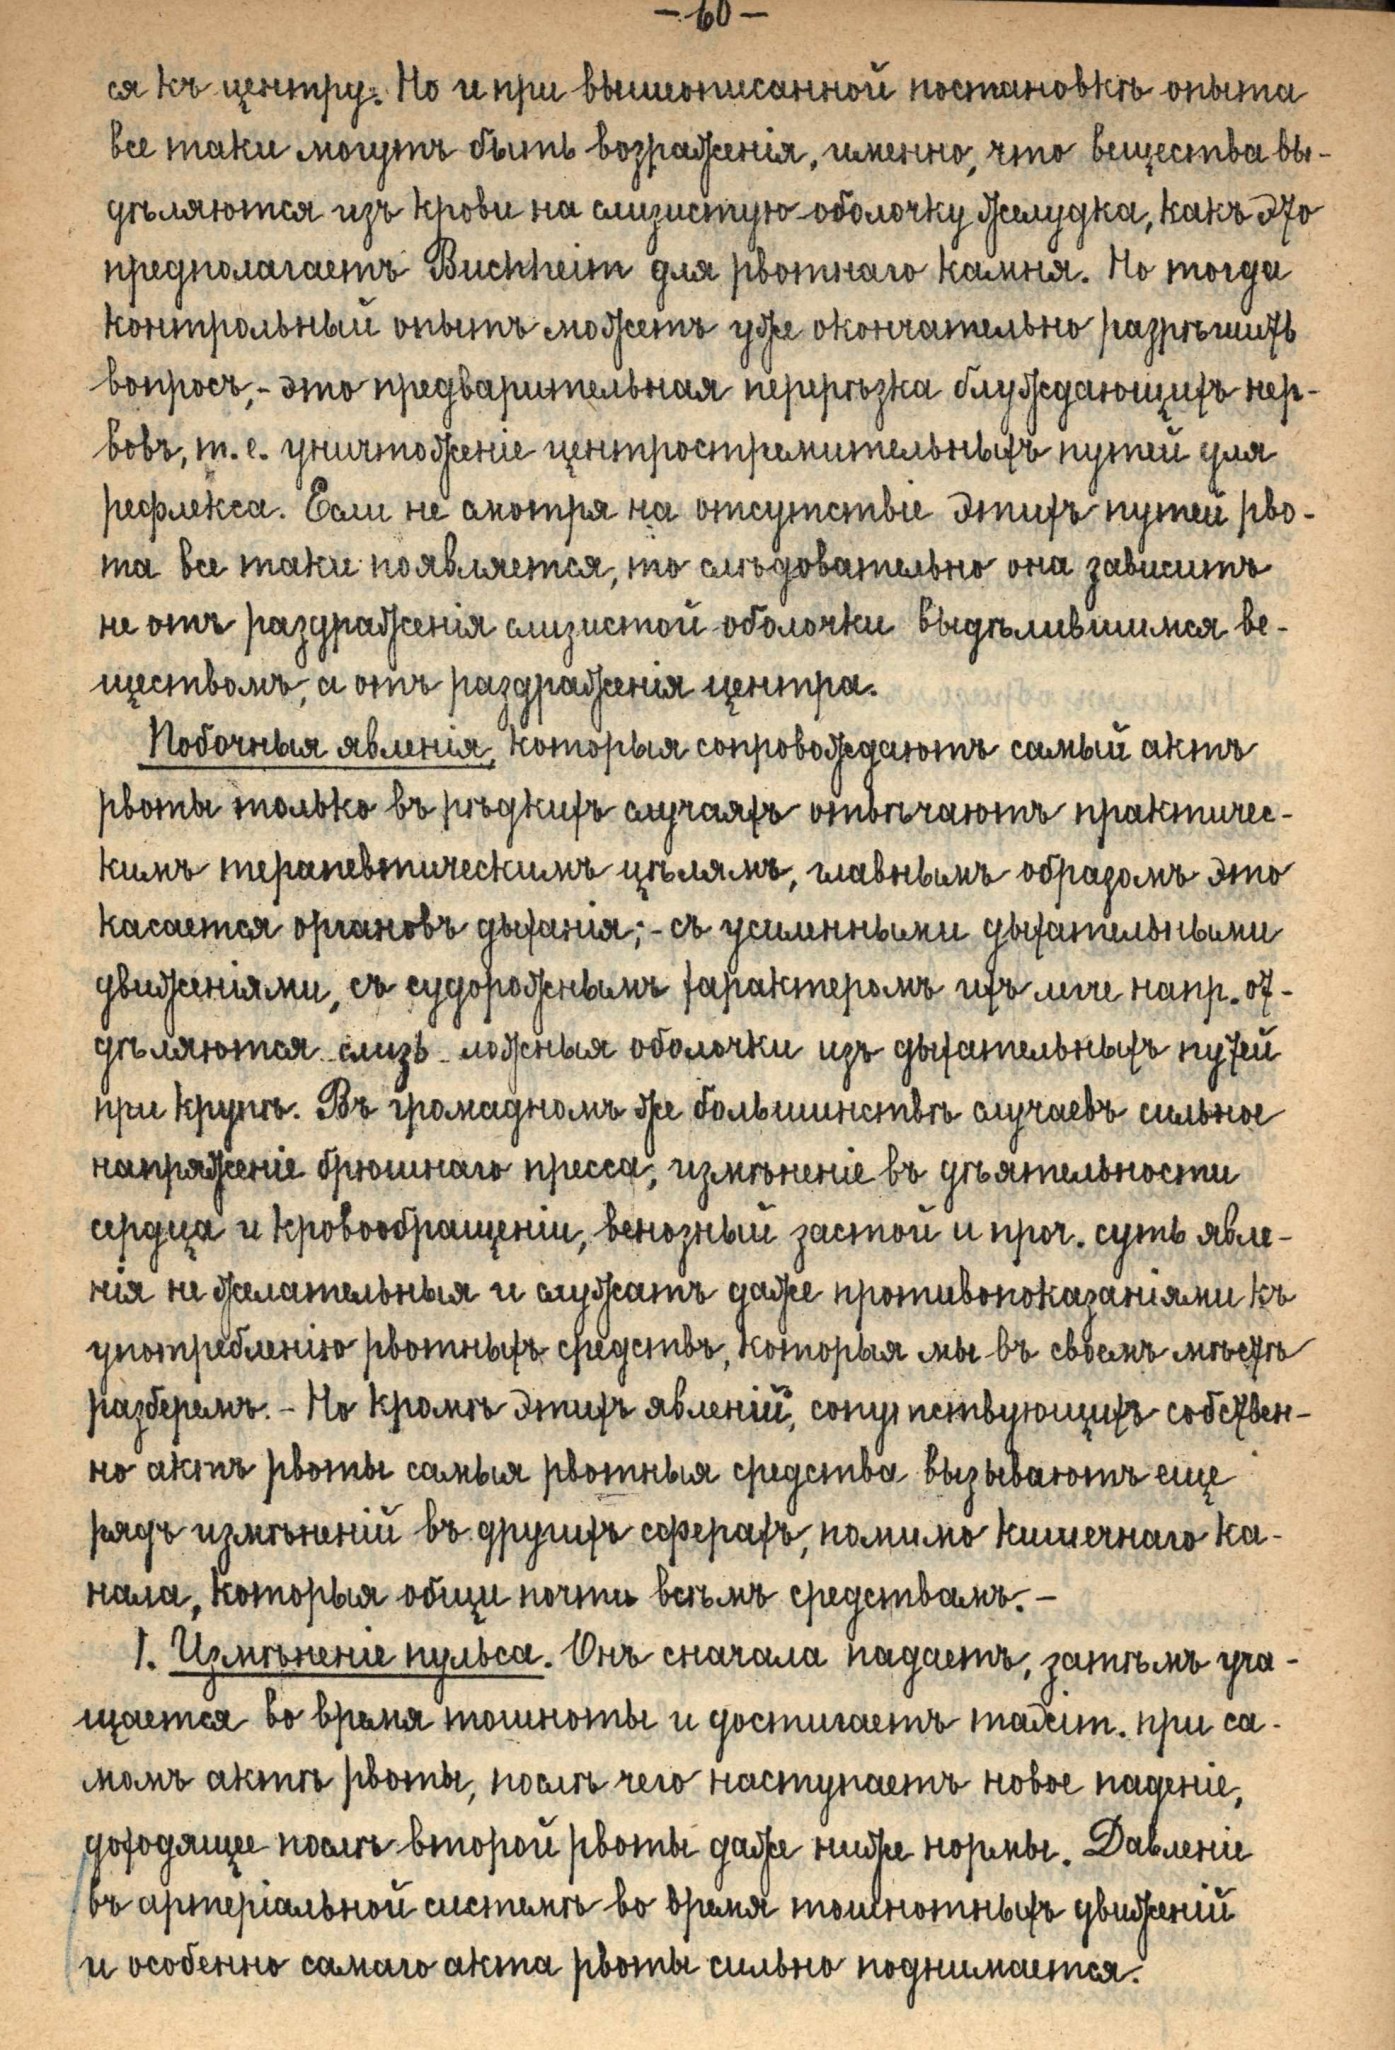 - 60 -
ся къ центру. Но и при вышеописанной постановкѣ опыта
все таки могутъ быть возраженія, именно, что вещества вы-
дѣляются изъ крови на слизистую оболочку желудка, какъ это
предполагаетъ Buchheim для рвотнаго камня. Но тогда
контрольный опытъ можетъ уже окончательно разрѣшить
вопросъ,- это предварительная перерѣзка блуждающихъ нер-
вовъ, т. е. уничтоженіе центростремительныхъ путей для
рефлекса. Если не смотря на отсутствіе этихъ путей рво-
та все таки появляется, то слѣдовательно она зависитъ
не отъ раздраженія слизистой оболочки выдѣлившимся ве-
ществомъ, а отъ раздраженія центра.
Побочныя явленія, которыя сопровождаютъ самый актъ
рвоты только въ рѣдкихъ случаяхъ отвѣчаютъ практичес-
кимъ терапевтическимъ цѣлямъ, главнымъ образомъ это
касается органовъ дыханія;- съ усиленными дыхательными
движеніями, съ судорожнымъ характеромъ ихъ легче напр. от-
дѣляются слизь ложныя оболочки изъ дыхательныхъ путей
при крупѣ. Въ громадномъ же большинствѣ случаевъ сильное
напряженіе брюшнаго пресса, измѣненіе въ дѣятельности
сердца и кровообращеніи, венозный застой и проч. суть явле-
нія не желательныя и служатъ даже противопоказаніями къ
употребленію рвотныхъ средствъ, которыя мы въ своемъ мѣстѣ
разберемъ. - Но кромѣ этихъ явленій, сопутствующихъ собствен-
но актъ рвоты самыя рвотныя средства вызываютъ еще
рядъ измѣненій въ другихъ сферахъ, помимо кишечнаго ка-
нала, которыя общи почти всѣмъ средствамъ. -
1. Измѣненіе пульса. Онъ сначала падаетъ, затѣмъ уча-
щается во время тошноты и достигаетъ maxim. при са-
момъ актѣ рвоты, послѣ чего наступаетъ новое паденіе,
доходящее послѣ второй рвоты даже ниже нормы. Давленіе
въ артеріальной системѣ во время тошнотныхъ движеній
и особенно самаго акта рвоты сильно поднимается.